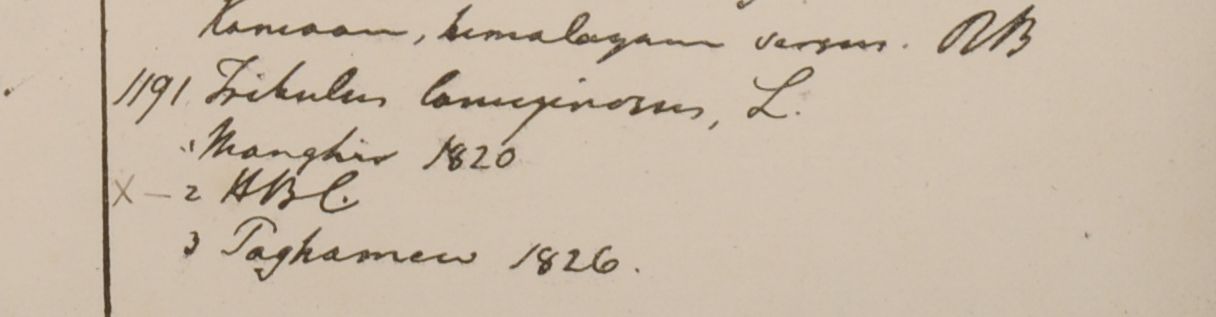 Kamaon, himalayam versus. RB
1191 Tribulus lanuginosus, L.
1 Monghir 1820
X – 2 HBC.
3 Taghamew 1826.